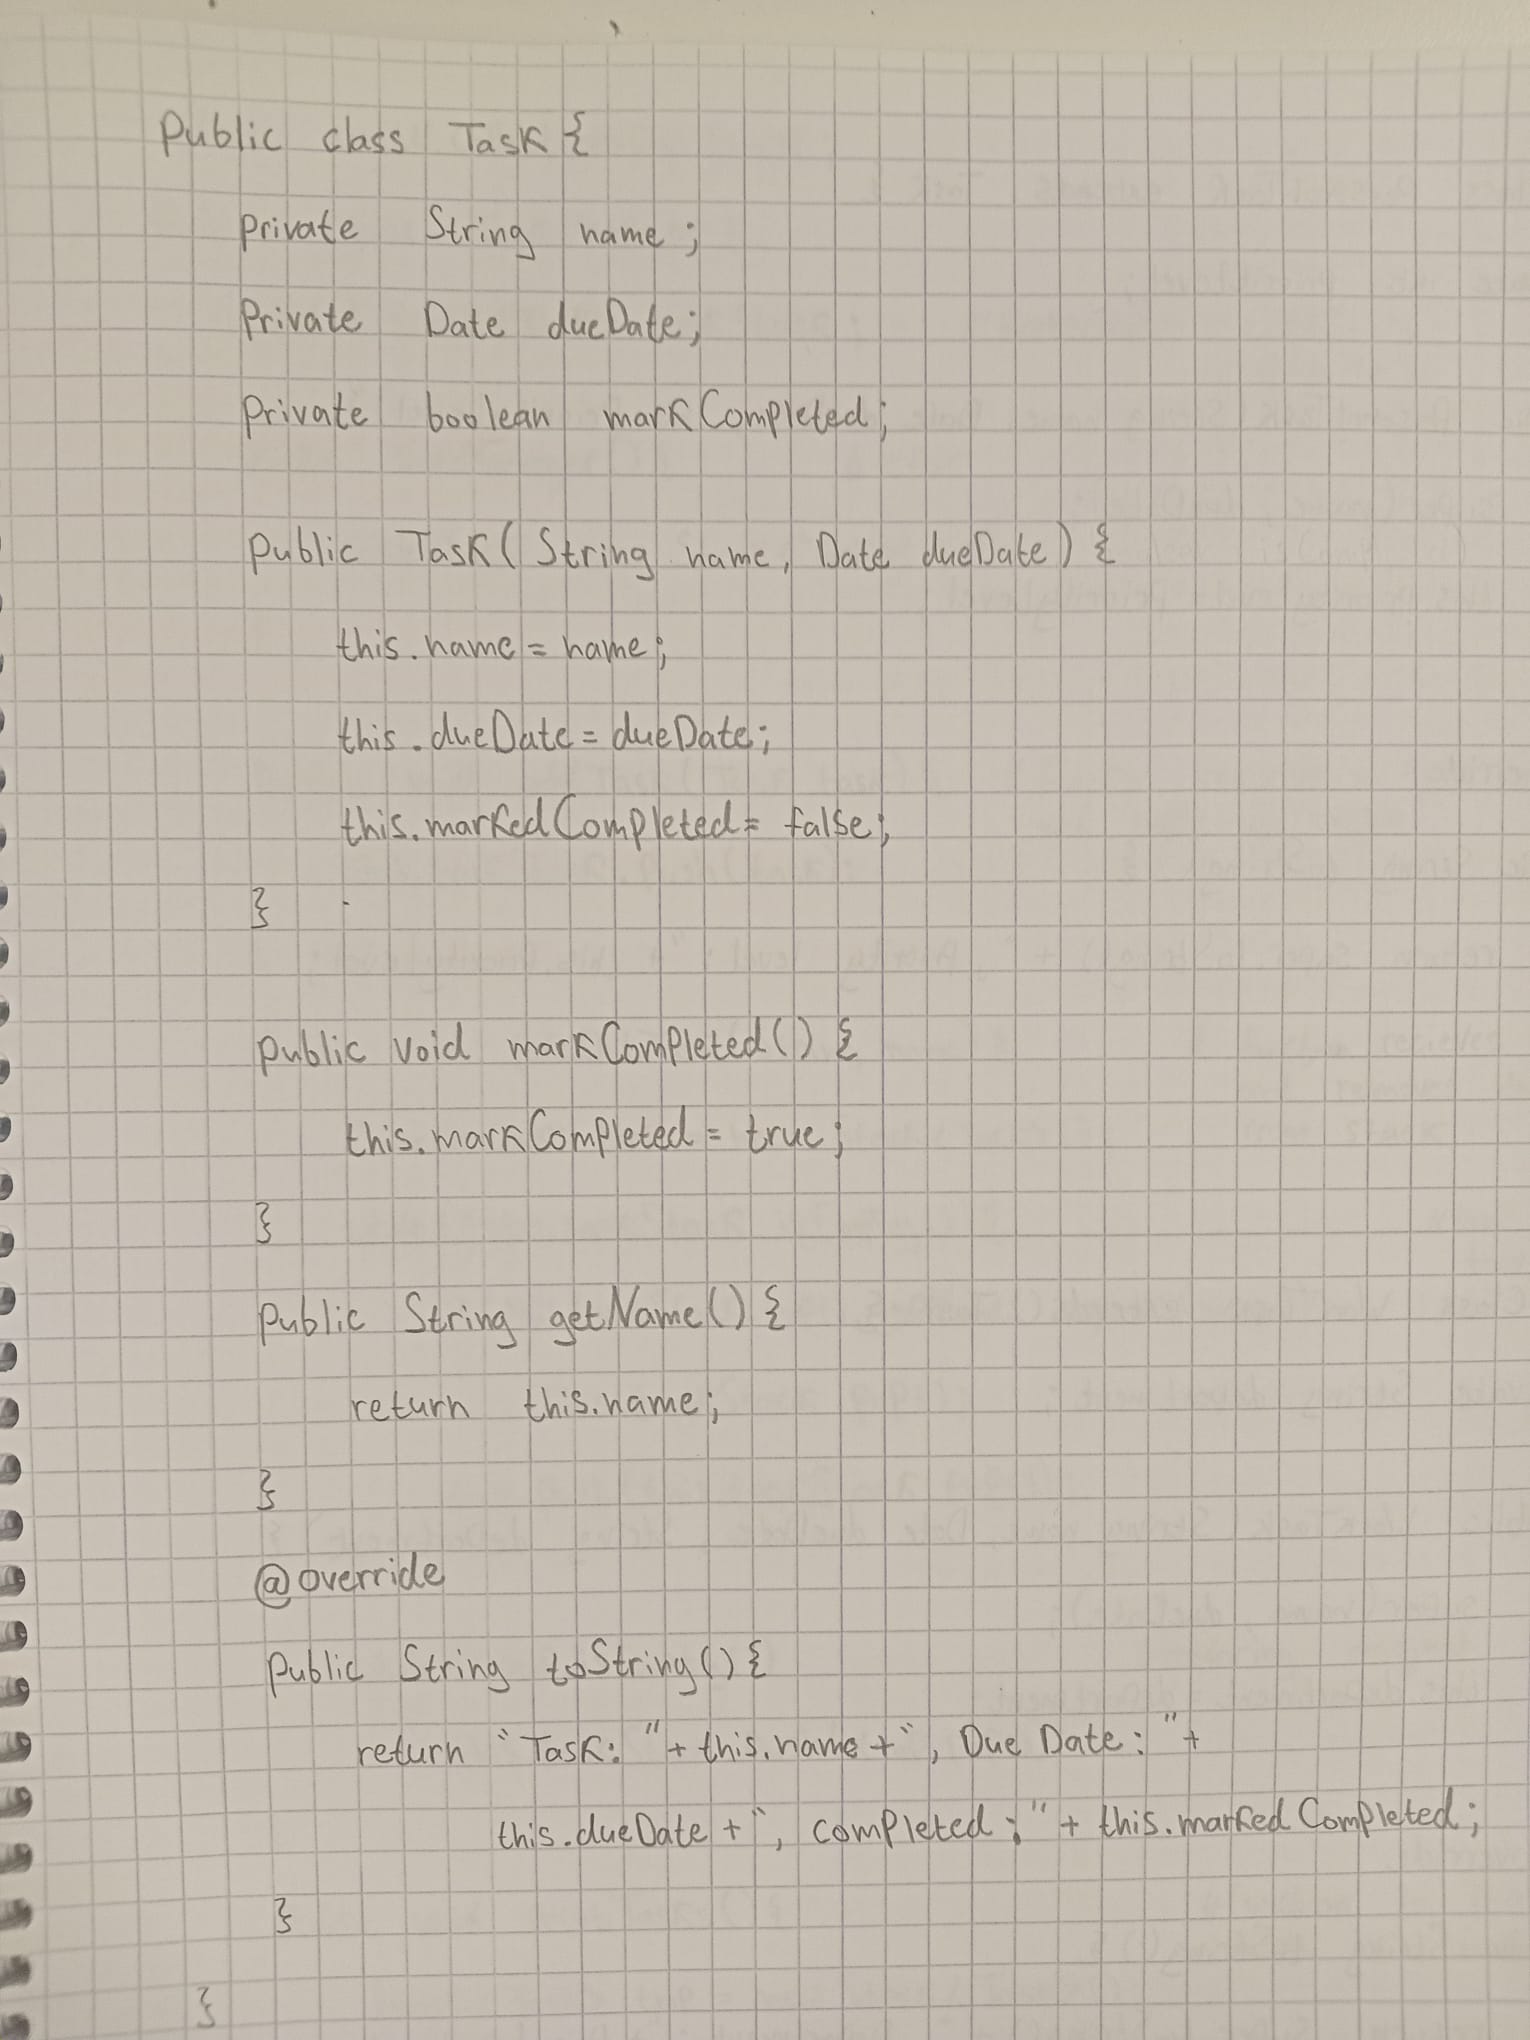 Public class Task {
private String name;
Private Date dueDate;
private boolean markCompleted;
public Task(String name, Date dueDate) {
this.name = name;
this.dueDate = dueDate;
this.markedCompleted = false;
}
public void markCompleted() {
this.markCompleted = true;
}
public String getName() {
return this.name;
}
@override
public String toString() {
return "Task: "+ this.name + ", Due Date: "+
this.dueDate + ", completed: " + this.markedCompleted;
}
}